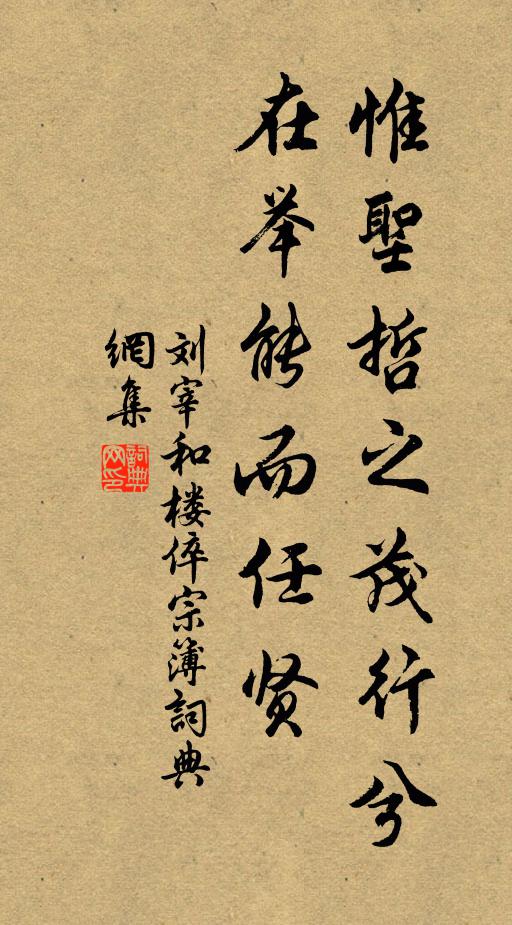 惟聖哲之茂行兮
在举能而任贤
刘宰和楼倅宗簿詞典
網集
詞典
网印